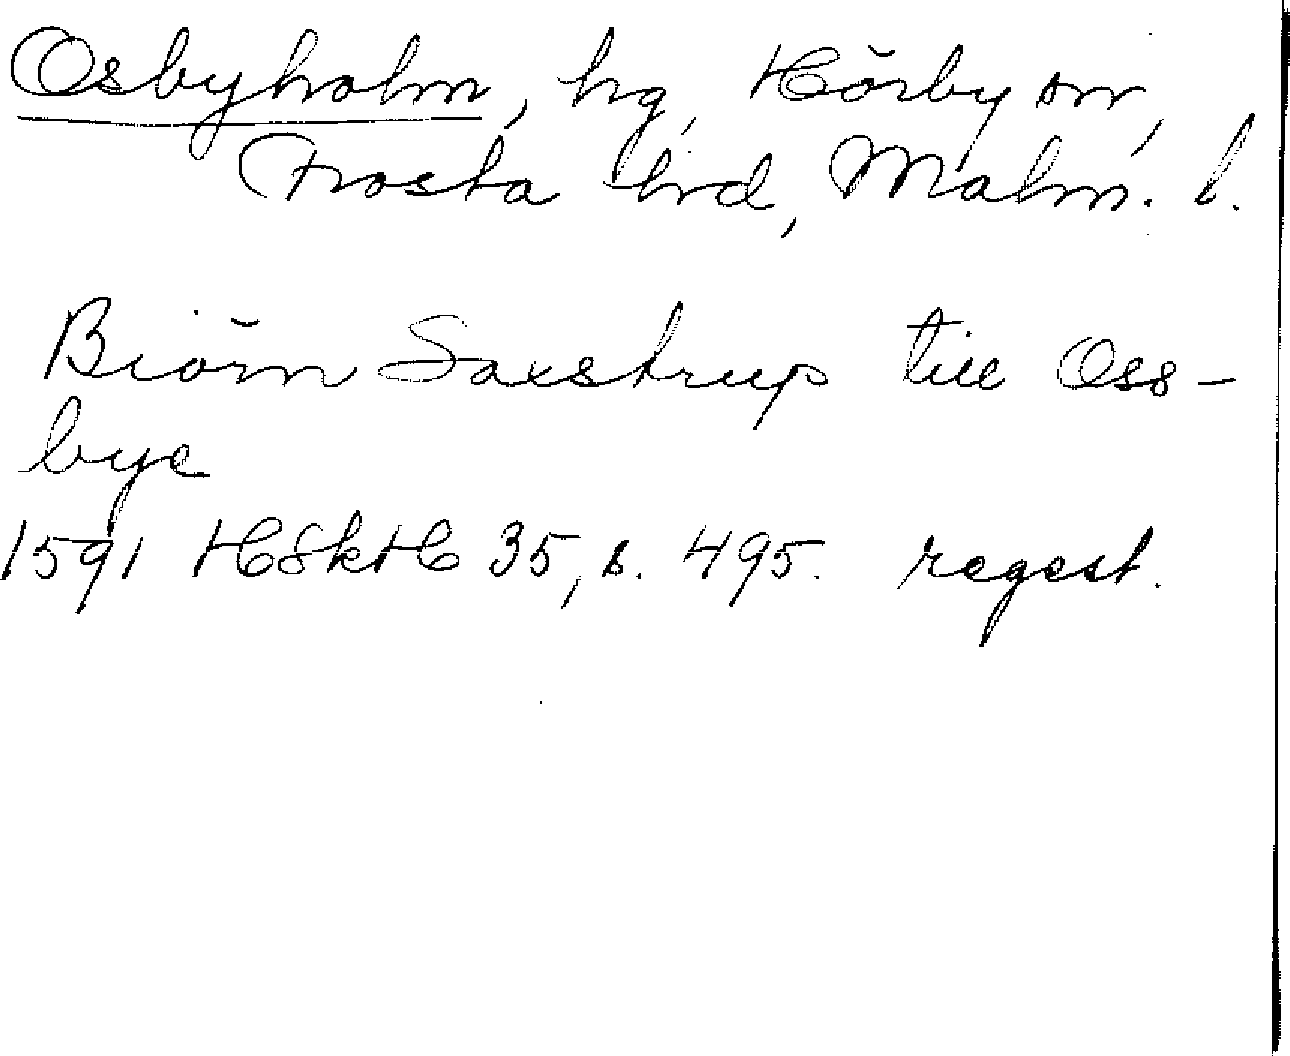 Osbyholm, hg, Hörby sn,
Frosta hrd, Malm. l.
Biörn Saxstrup till Oss-
bye
1591 HSkH 35, s. 495. regest.